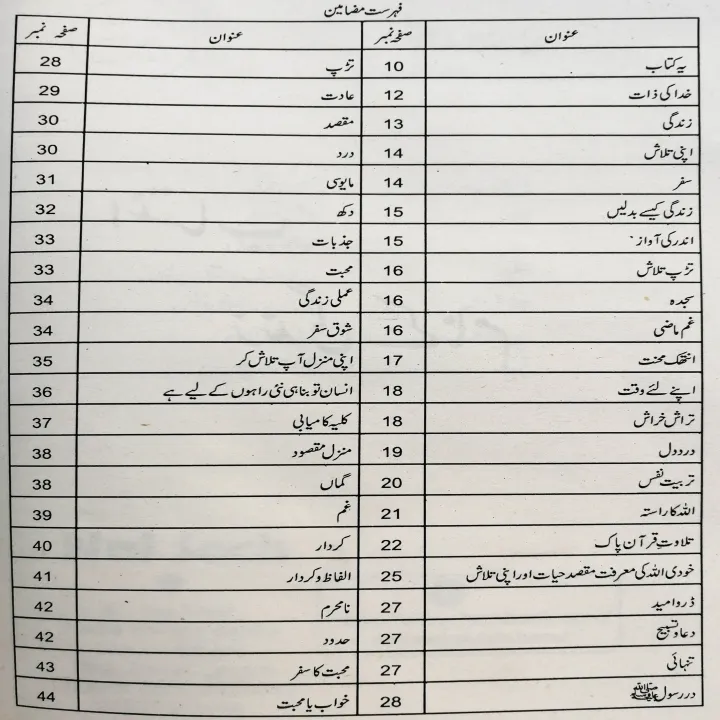 فہرست مضامین
عنوان صفحہ نمبر عنوان صفحہ نمبر
یہ کتاب 10 تڑپ 28
خدا کی ذات 12 عادت 29
زندگی 13 مقصد 30
اپنی تلاش 14 درد 30
سفر 14 مایوسی 31
زندگی کیسے بدلیں 15 دکھ 32
اندر کی آواز 15 جذبات 33
تڑپ تلاش 16 محبت 33
سجدہ 16 عملی زندگی 34
غم ماضی 16 شوق سفر 34
انتھک محنت 17 اپنی منزل آپ تلاش کر 35
اپنے لئے وقت 18 انسان تو بنا ہی نئی راہوں کے لیے ہے 36
تراش خراش 18 کلیہ کامیابی 37
درد دل 19 منزل مقصود 38
تربیت نفس 20 گماں 38
اللہ کا راستہ 21 غم 39
تلاوتِ قرآن پاک 22 کردار 40
خودی اللہ کی معرفت مقصد حیات اور اپنی تلاش 25 الفاظ و کردار 41
ڈر و امید 27 نامحرم 42
دعا و تسبیح 27 حدود 42
تنہائی 27 محبت کا سفر 43
در رسول ﷺ 28 خواب یا محبت 44